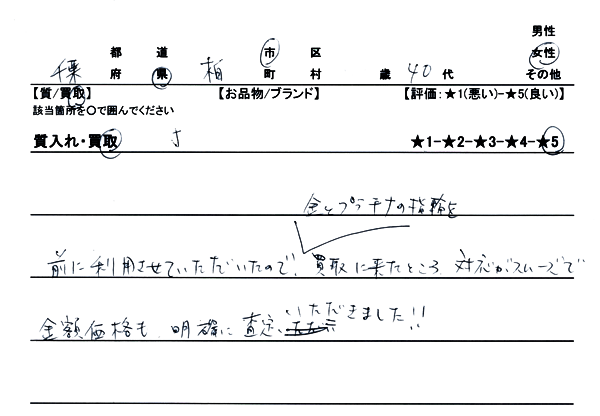 男性
都 道 市 区 女性
千葉 府 県 柏 町 村 歳 40 代 その他
【質/買取】 【お品物/ブランド】 【評価:★1(悪い)-★5(良い)】
該当箇所を〇で囲んでください
質入れ・買取 ★1-★2-★3-★4-★5
金とプラチナの指輪を
前に利用させていただいたので、買取に来たところ、対応がスムーズで
金額価格も、明確に査定いただきました!!